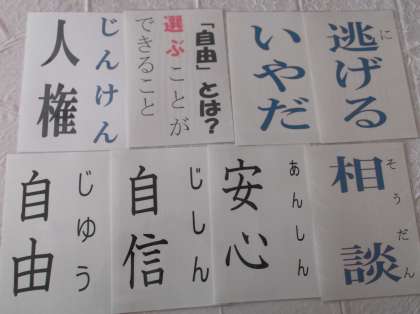 逃げる
に
いやだ
「自由」とは？
選ぶことが
できること
じんけん
人権
そうだん
相談
あんしん
安心
じしん
自信
じゆう
自由